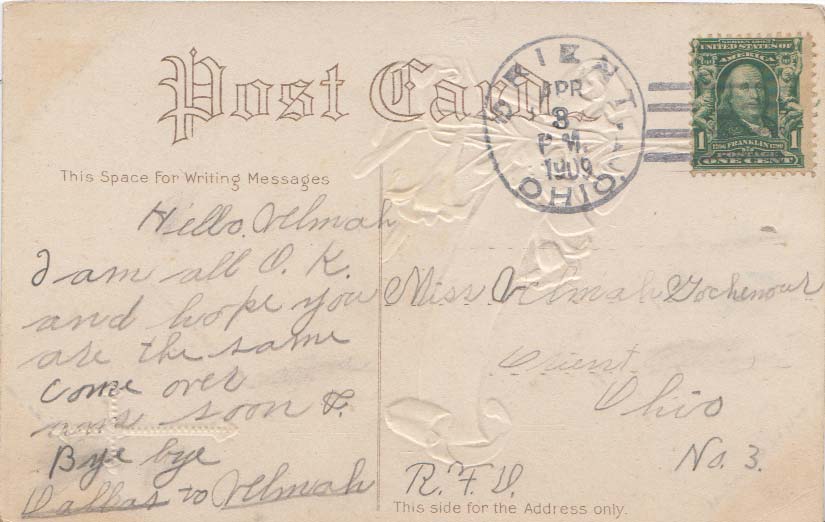 Post Card
ORIENT, OHIO.
APR
3
P.M.
1909
SERIES 1902
UNITED STATES OF
AMERICA
1 FRANKLIN 1
POSTAGE
ONE CENT
This Space For Writing Messages
Hello. Velmah
I am all O. K.
and hope you
are the same
Come over
soon
Bye bye
Dallas to Velmah
Miss Velmah Gochenour
Orient
Ohio
No. 3.
R. F. D.
This side for the Address only.